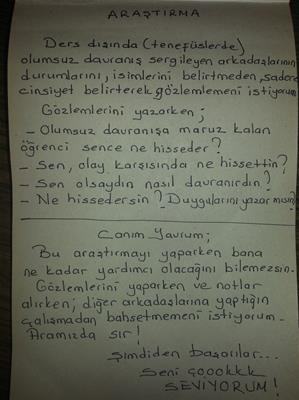 ARAŞTIRMA
Ders dışında (teneffüslerde)
olumsuz davranış sergileyen arkadaşlarının
durumlarını, isimlerini belirtmeden, sadece
cinsiyet belirterek gözlemlemeni istiyorum
Gözlemlerini yazarken;
- Olumsuz davranışa maruz kalan
öğrenci sence ne hisseder?
- Sen, olay karşısında ne hissettin?
- Sen olsaydın nasıl davranırdın?
- Ne hissedersin? Duygularını yazar mısın?
Canım Yavrum;
Bu araştırmayı yaparken bana
ne kadar yardımcı olacağını bilemezsin.
Gözlemlerini yaparken ve notlar
alırken; diğer arkadaşlarına yaptığın
çalışmadan bahsetmemeni istiyorum.
Aramızda sır!
Şimdiden başarılar...
Seni çoookkk
SEVİYORUM!